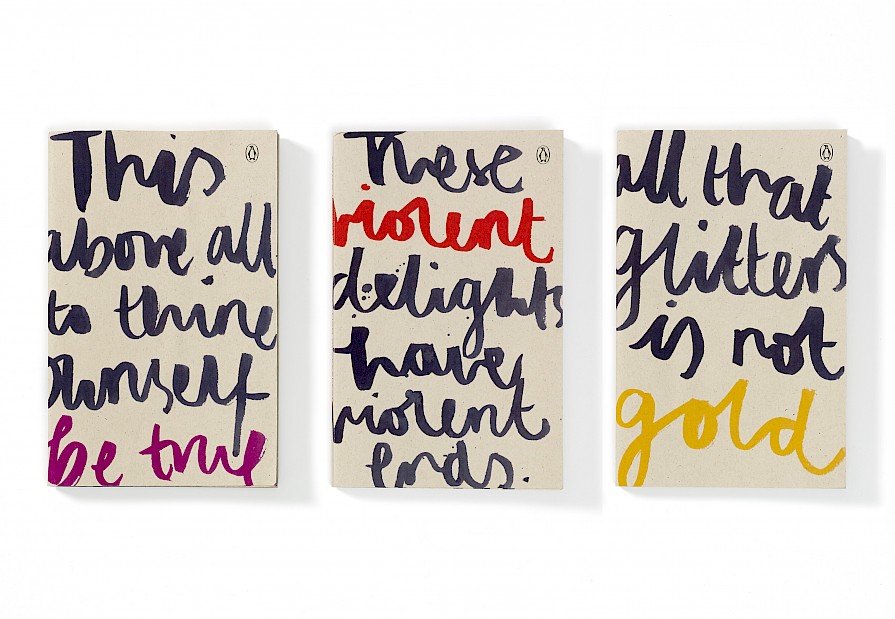 This
above all
to thine
ownself
be true
These
violent
delights
have
violent
ends.
all that
glitters
is not
gold